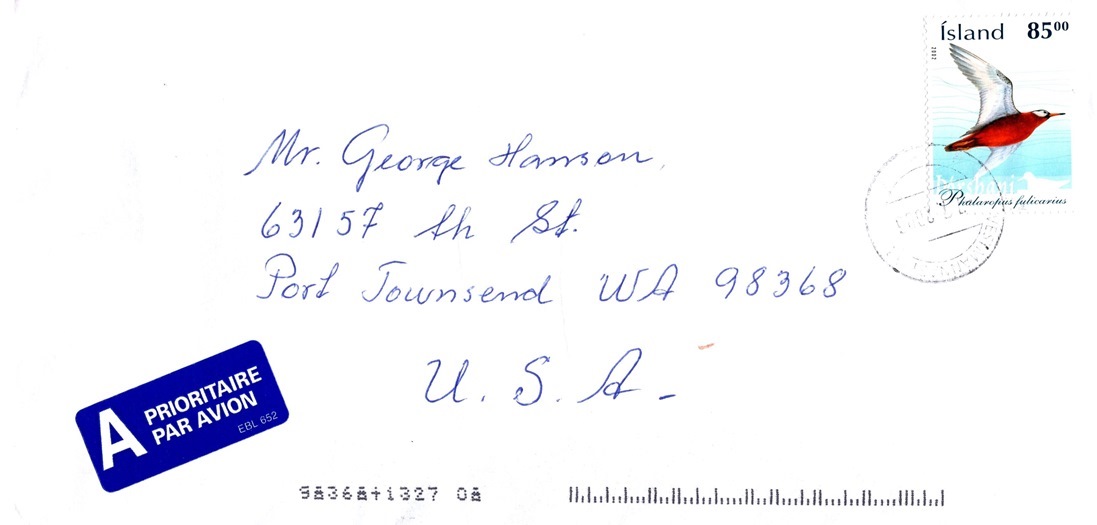 Ísland 85⁰⁰
2002
Þórshani
Phalaropus fulicarius
Mr. George Hanson,
63157 th St.
Port Townsend WA 98368
U. S. A.
A PRIORITAIRE
PAR AVION
EBL 652
98368+1327 08